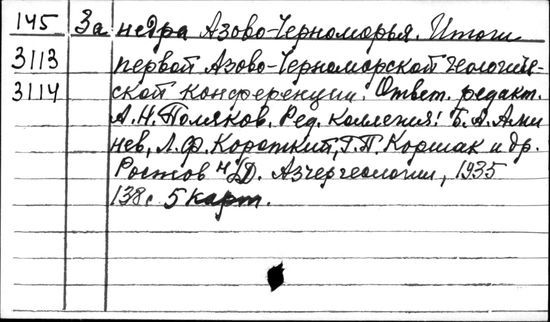 145 За недра Азово-Черноморья. Итоги
3113 первой Азово-Черноморской геологиче-
3114 ской конференции. Ответ. редакт.
А.Н. Поляков. Ред. коллегия: Б.А. Ами
нев, Л.Ф. Короткий, Г.П. Коршак и др.
Ростов н/Д. Азчергеология, 1935
138 с. 5 карт.